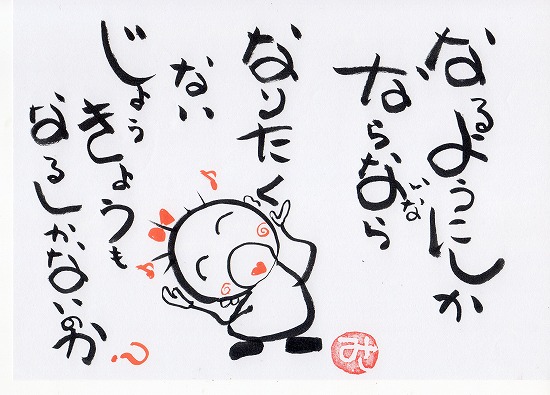 なるようにしか
ならないなら
なりたく
ない
じょう
きょうも
なるしかないのか?
み